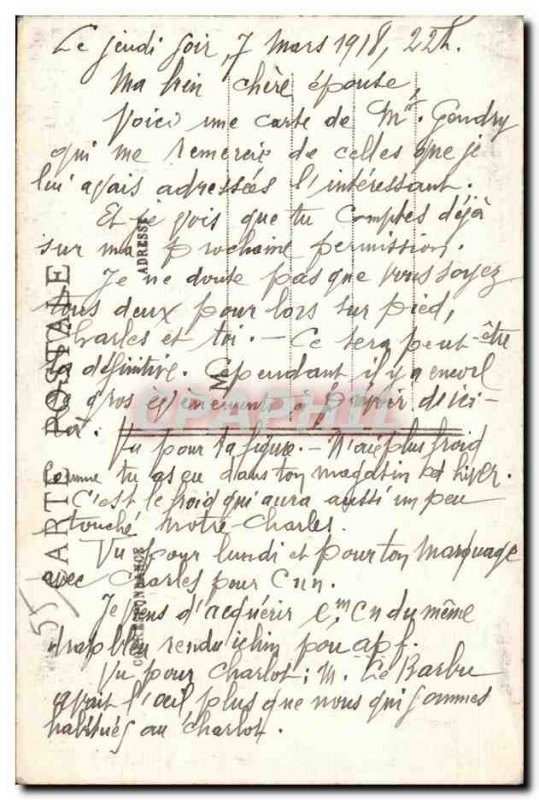 Le jeudi soir, 7 mars 1918, 22h.
Ma bien chère épouse,
Voici une carte de Mr. Gendry
qui me remercie de celles que je
lui avais adressées l'intéressant.
Et je vois que tu comptes déjà
sur ma prochaine permission.
Je ne doute pas que vous soyez
tous deux pour lors sur pied,
Charles et toi. — Ce sera peut-être
la définitive. Cependant il y a encore
gros événements à prévoir d'ici-
là.
Vu pour ta figue. — N'aie plus froid
comme tu as eu dans ton magasin cet hiver.
C'est le froid qui aura aussi un peu
touché notre Charles.
Vu pour lundi et pour ton marquage
avec Charles pour
Je viens d'acquérir du même
drap bleu rendu
Vu pour Charlot : M. Le Barbu
avait l'œil plus que nous qui sommes
habitués au Charlot.
CARTE POSTALE
ADRESSE
CORRESPONDANCE
M
CPAPHIL
55